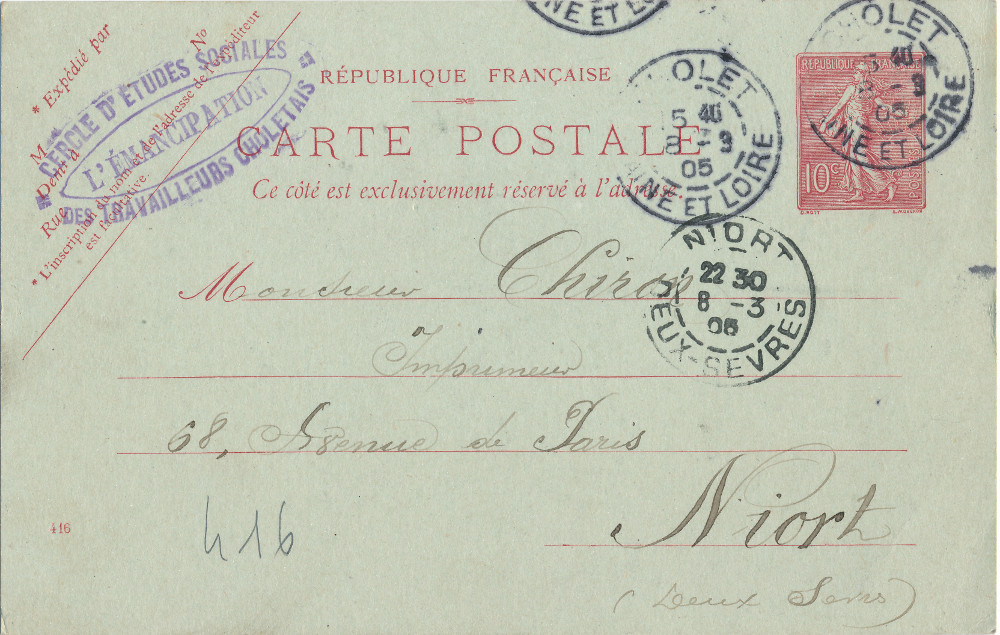 NE ET LOI
* Expédié par
No
M
Demt à
Rue
* L'inscription du nom et de l'adresse de l'expéditeur
est facultative.
CERCLE D'ÉTUDES SOCIALES
L'ÉMANCIPATION
DES TRAVAILLEURS CHOLETAIS
RÉPUBLIQUE FRANÇAISE
CARTE POSTALE
Ce côté est exclusivement réservé à l'adresse.
OLET
5 40
8 - 3
05
NE ET LOIRE
OLET
40
8 - 3
05
INE ET LOIRE
REPUBLIQUE FRANÇAISE
10c
POSTES
O. ROTY
NIORT
22 30
8 - 3
05
DEUX-SEVRES
Monsieur Chiron
Imprimeur
68, Avenue de Paris
Niort
(Deux Sevres)
416
416